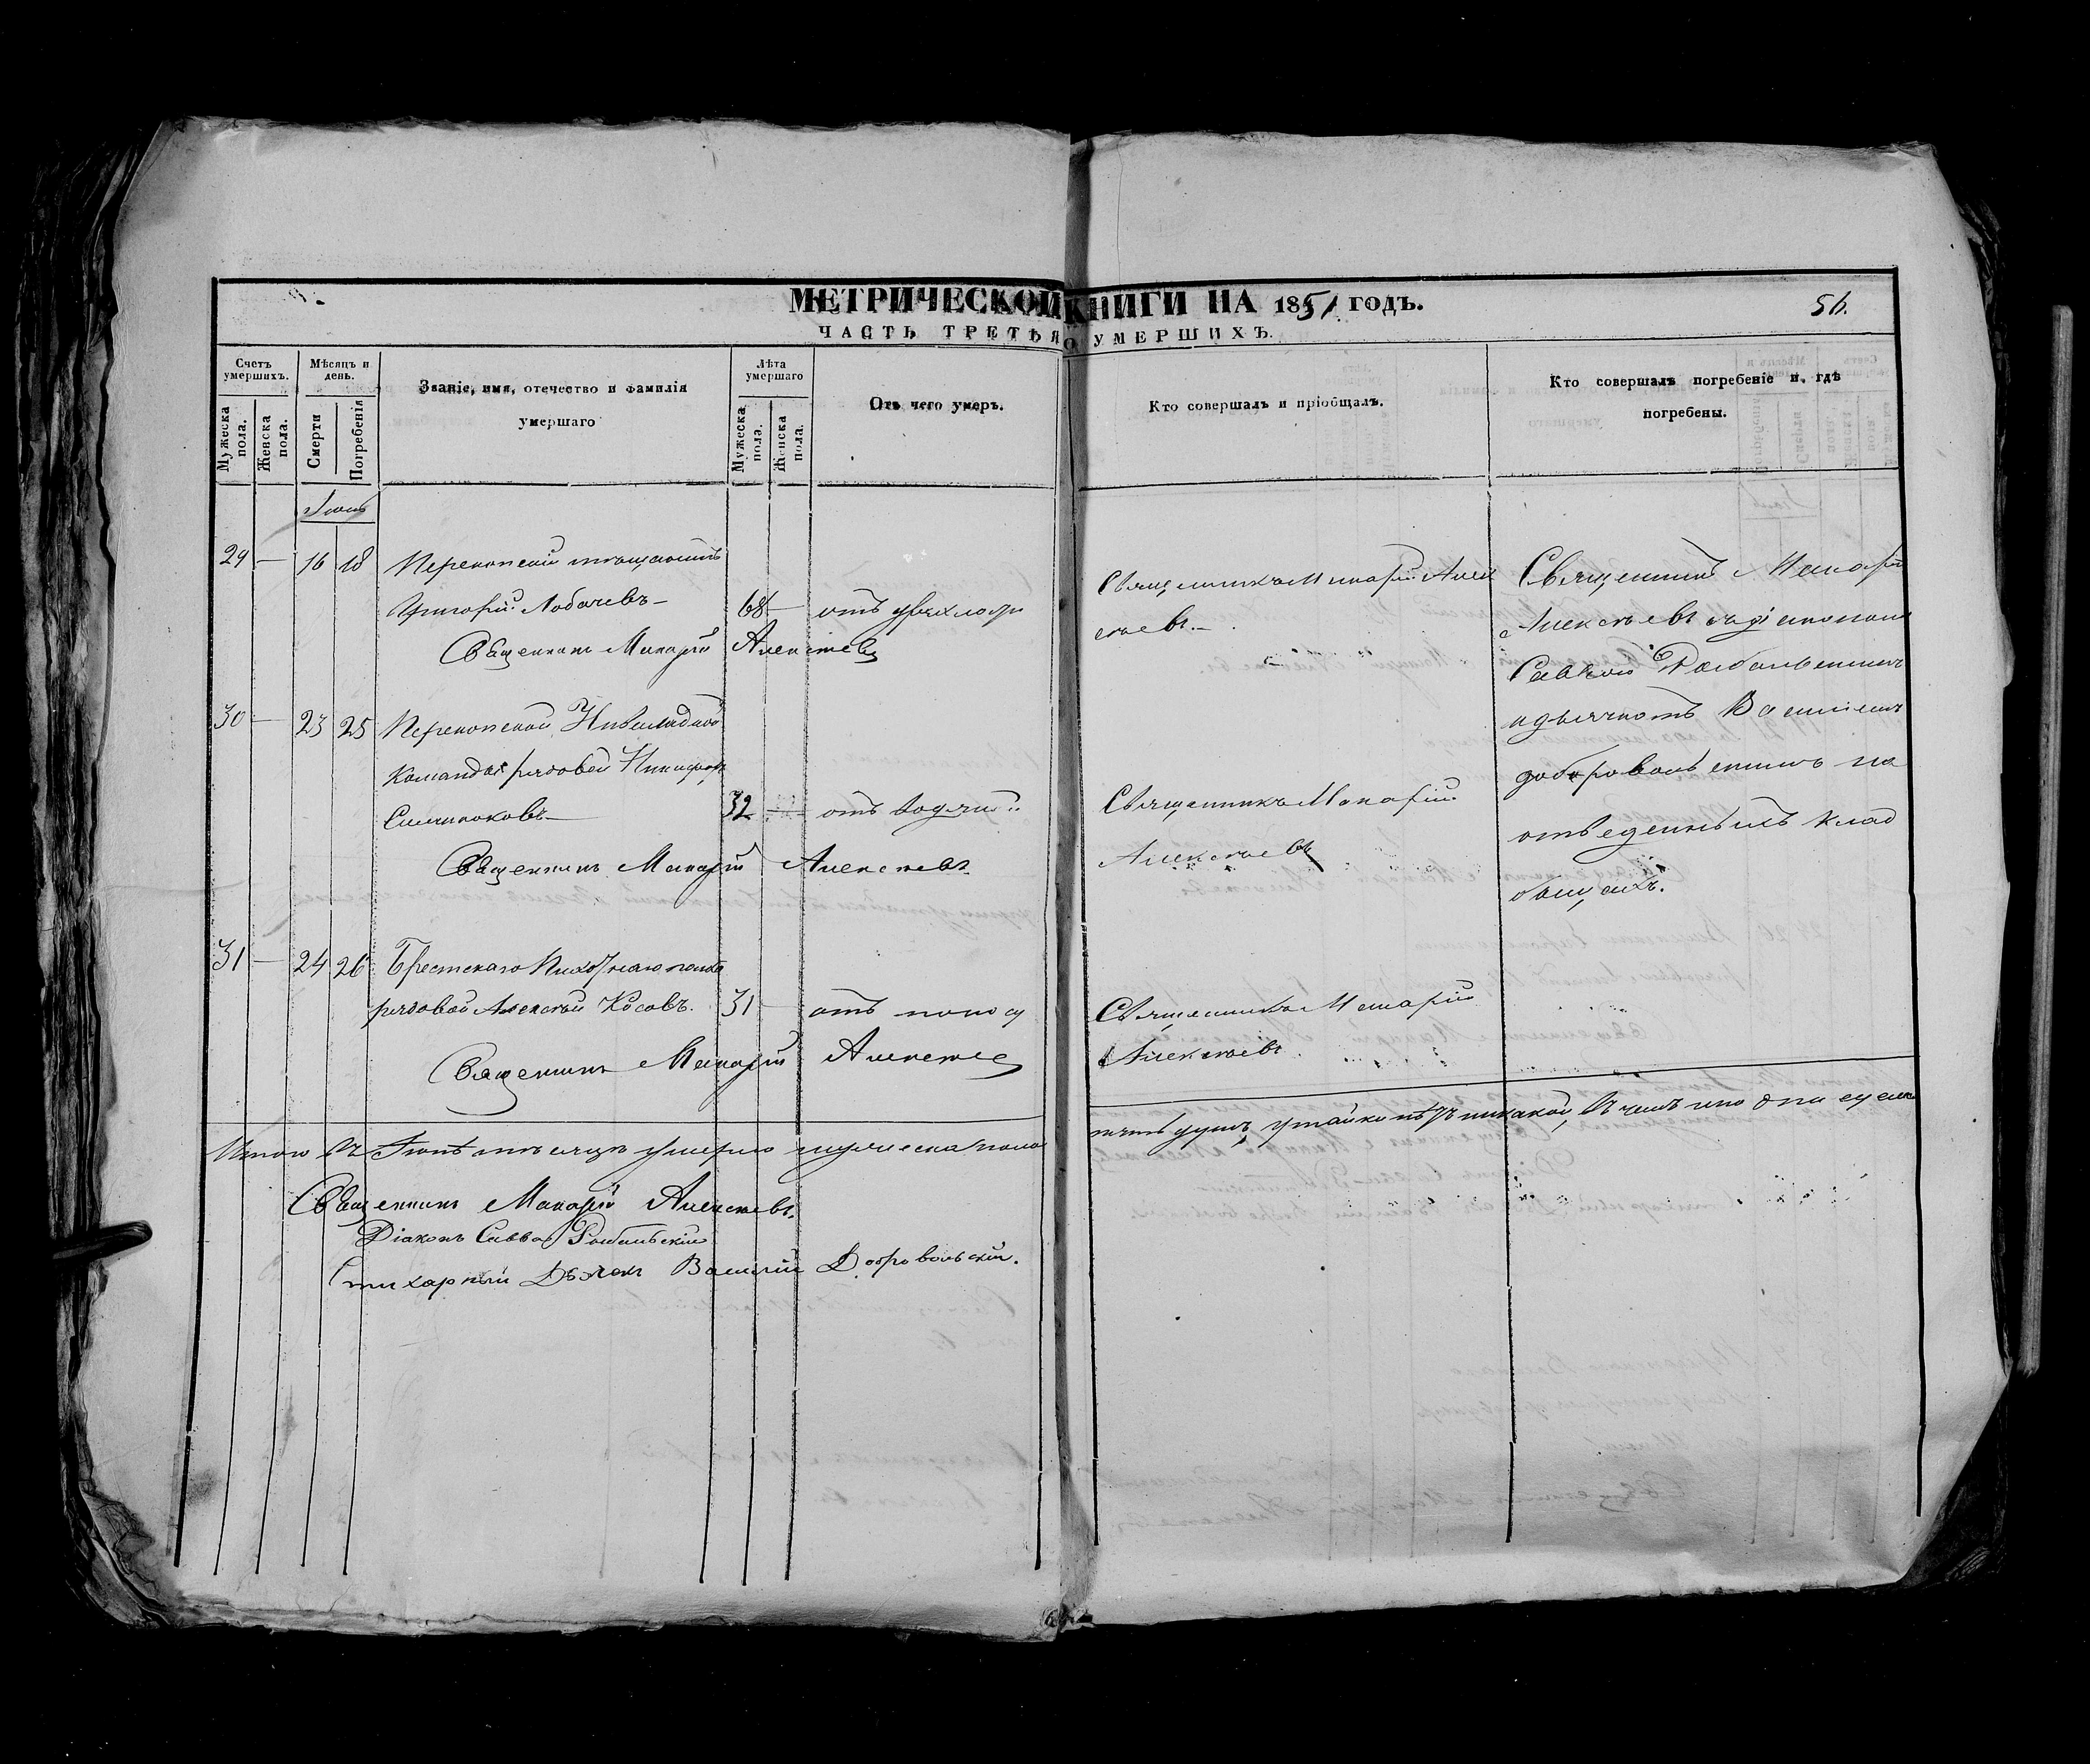 МЕТРИЧЕСКОЙ КНИГИ НА 1851 ГОДЪ.
56.
ЧАСТЬ ТРЕТЬЯ О УМЕРШИХЪ.
Счетъ умершихъ.
Мѣсяцъ и день.
Званіе, имя, отечество и фамилія умершаго
Лѣта умершаго
Отъ чего умеръ.
Кто совершалъ и пріобщалъ.
Кто совершалъ погребеніе и гдѣ погребены.
Мужеска пола.
Женска пола.
Смерти
Погребенія
Мужеска пола.
Женска пола.
29 — 16 18 Перекопскій мѣщанинъ
Григорій Лобачевъ — 68 — отъ
Священникъ Макарій Алексѣевъ
Священникъ Макарій Алек
сѣевъ. —
30 — 23 25 Перекопской Инвалидной
Команды рядовой
32 — отъ водяной
Священникъ Макарій Алексѣевъ
Священникъ Макарій
Алексѣевъ
31 — 24 26 Брестскаго Пѣхотнаго полка
рядовой Алексѣй Косовъ. 31 — отъ поносу
Священникъ Макарій Алексѣевъ
Священникъ Макарій
Алексѣевъ
Священникъ Макарій
Алексѣевъ съ діакономъ
Саввою
и дьячкомъ Василіемъ
Добровольскимъ на
отведенномъ клад
бищахъ.
Итого въ Іюнѣ мѣсяцѣ умерло мужеска пола
душъ, утайки нѣтъ никакой, въ чемъ
Священникъ Макарій Алексѣевъ.
Діаконъ Савва
Стихарный Дьячекъ Василій Добровольскій.